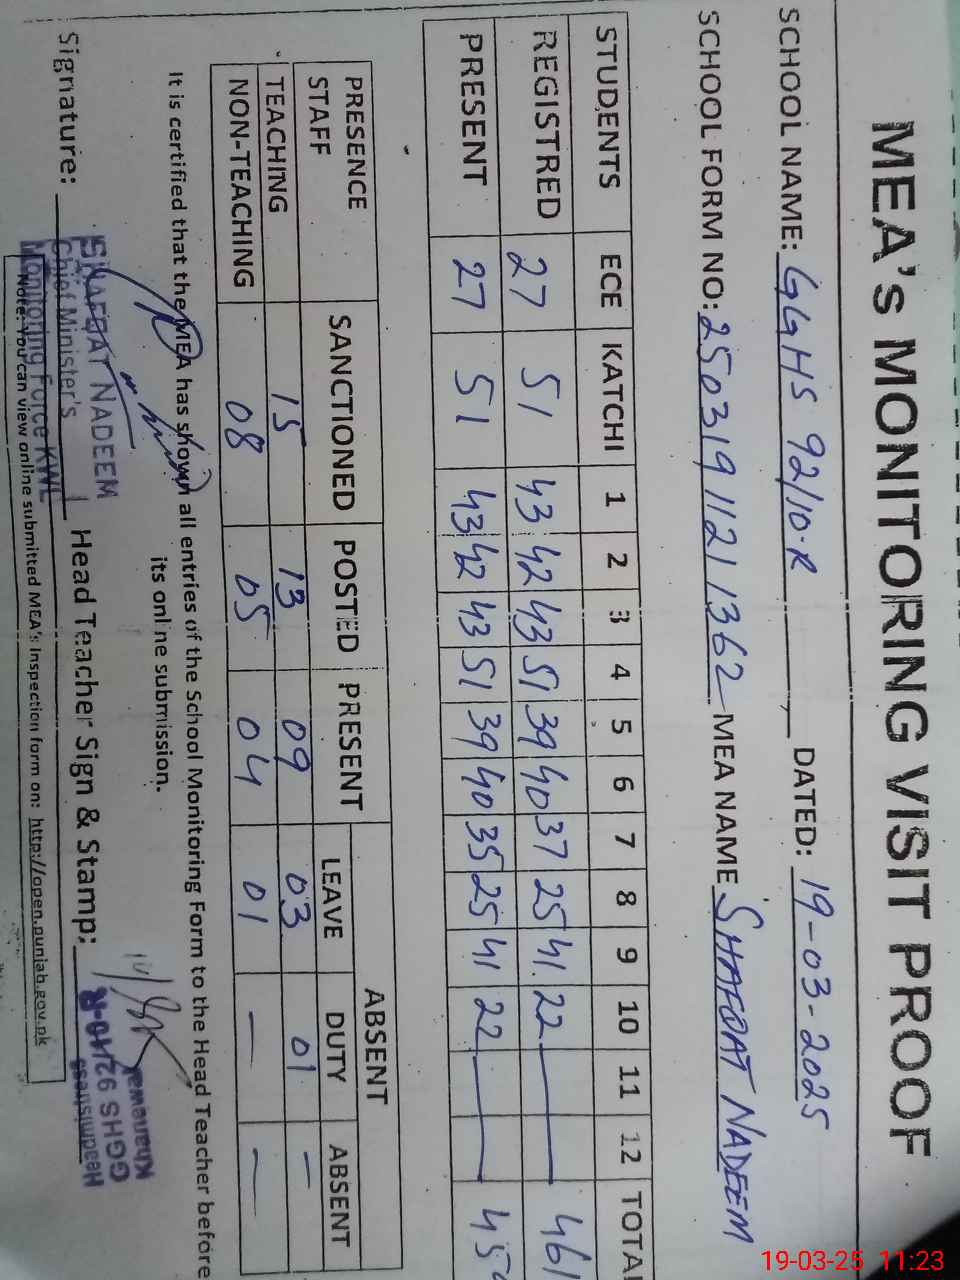 MEA's MONITORING VISIT PROOF
SCHOOL NAME: GGHS 92/10-R DATED: 19-03-2025
SCHOOL FORM NO: 25031911211362 MEA NAME SHAFQAT NADEEM
STUDENTS ECE KATCHI 1 2 3 4 5 6 7 8 9 10 11 12 TOTAL
REGISTRED 27 51 43 42 43 51 39 40 37 25 41 22 — — 461
PRESENT 27 51 43 42 43 51 39 40 35 25 41 22 — —
PRESENCE STAFF SANCTIONED POSTED PRESENT ABSENT
LEAVE DUTY ABSENT
TEACHING 15 13 09 03 01 —
NON-TEACHING 08 05 04 01 — —
It is certified that the MEA has shown all entries of the School Monitoring Form to the Head Teacher before
its online submission.
Signature: Head Teacher Sign & Stamp:
SHAFQAT NADEEM
Chief Minister's
Monitoring Force KWL
Headmistress
GGHS 92/10-R
Khanewal
Note: You can view online submitted MEA's Inspection form on: http://open.punjab.gov.pk
19-03-25 11:23